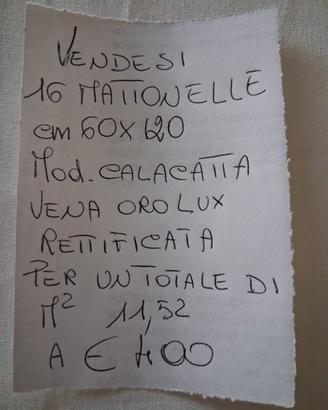 VENDESI
16 MATTONELLE
cm 60X120
Mod. CALACATTA
VENA ORO LUX
RETTIFICATA
PER UN TOTALE DI
M² 11,52
A € 400